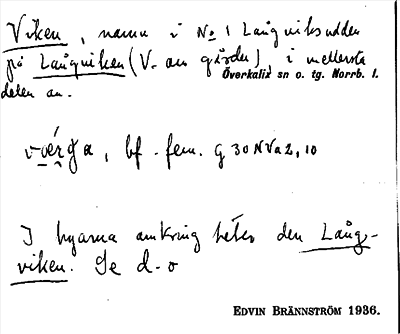 Viken, namn i No 1 Långviksudden
på Långviken (V. om gården), i mellersta
Överkalix sn o. tg. Norrb. l.
delen av.
bf. fem. G 30 NV a 2, 10
I byarna omkring heter den Lång-
viken. Se d. o
EDVIN BRÄNNSTRÖM 1936.